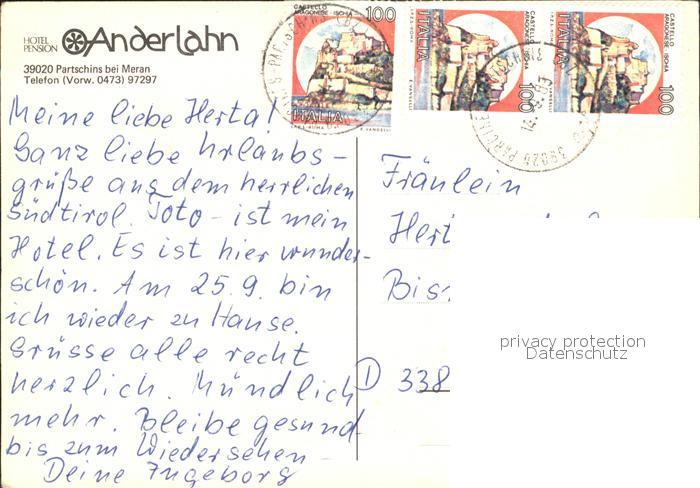 HOTEL
PENSION
Anderlahn
39020 Partschins bei Meran
Telefon (Vorw. 0473) 97297
Meine liebe Herta!
Ganz liebe Urlaubs-
grüße aus dem herrlichen
Südtirol. Foto - ist mein
Hotel. Es ist hier wunder-
schön. Am 25.9. bin
ich wieder zu Hause.
Grüsse alle recht
herzlich. Mündlich
mehr. Bleibe gesund
bis zum Wiedersehen
Deine Ingeborg
CASTELLO
ARAGONESE - ISCHIA
100
ITALIA
I.P.Z.S. - ROMA
E. VANGELLI
CASTELLO
ARAGONESE - ISCHIA
100
ITALIA
I.P.Z.S. - ROMA
E. VANGELLI
CASTELLO
ARAGONESE - ISCHIA
100
ITALIA
39020
Fräulein
Hert
Bis
D 338
privacy protection
Datenschutz